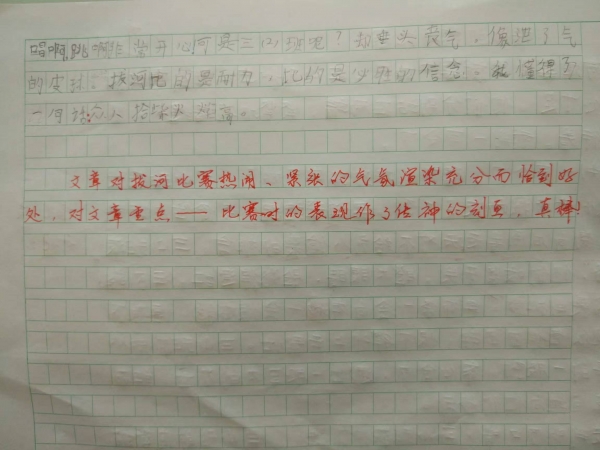 唱啊,跳啊,非常开心,可是三(2)班呢?却垂头丧气,像泄了气
的皮球。拔河比的是耐力,比的是必胜的信念。我懂得了
一句话:众人拾柴火焰高。
文章对拔河比赛热闹、紧张的气氛渲染充分而恰到好
处,对文章重点——比赛时的表现作了传神的刻画,真棒!